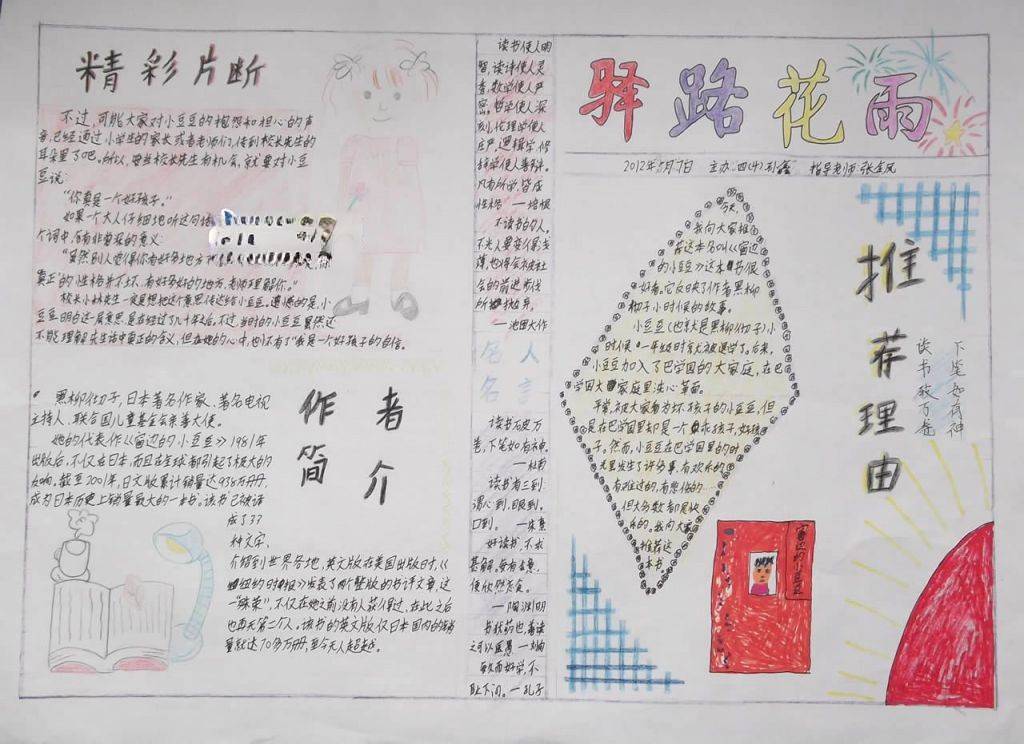 精彩片断
不过,可能大家对小豆豆的
音,已经通过小学生的家长或者老师们,传到校长先生的
耳朵里了吧。所以,每当校长先生有机会,就要对小豆
豆说
“你真是一个好孩子。”
如果一个大人仔细地听这句话
个词中,含有非常深的意义:
真正”的性格并不坏,有好多好的地方,老师理解你。”
校长小林先生一定是想把这个意思传达给小豆豆。遗憾的是,小
豆豆明白这一层意思,是在经过了几十年之后。不过,当时的小豆豆虽然还
不能理解先生话中真正的含义,但在她的心中,也还有了“我是一个好孩子”的自信。
作者
简介
黑柳彻子,日本著名作家、著名电视
主持人、联合国儿童基金会亲善大使。
她的代表作《窗边的小豆豆》1981年
出版后,不仅在日本,而且在全球都引起了极大的
反响,截至2001年,日文版累计销量达938万册,
成为日本历史上销量最大的一本书。该书已被译
成了33
种文字,
介绍到世界各地,英文版在美国出版时,《
纽约时报》发表了两个整版的书评文章,这
一“殊荣”,不仅在她之前没有人获得过,在此之后
也再无第二个人。该书的英文版仅日本国内的销
量就达70多万册,至今无人超越。
读书使人明
智,读诗使人灵
秀,数学使人严
密,哲学使人深
刻,伦理学使人
庄严,逻辑学,修
辞学使人善辩。
凡有所学,皆成
性格 —培根
不读书的人,
—池田大作
名人
名言
读书破万
卷,下笔如有神。
—杜甫
读书有三到:
谓心到,眼到,
口到。 —朱熹
好读书,不求
甚解,每有会意,
便欣然忘食。
—陶渊明
书犹药也,善读
之可以医愚 —刘向
敏而好学,不
耻下问。—孔子
驿路花雨
2012年5月7日 主办:四(中)孙鑫 指导老师:张金凤
今天,
我向大家推
荐这本名叫《窗边
的小豆豆》这本书很
好看。它反映了作者黑柳
彻子小时候的故事。
小豆豆(也就是黑柳彻子)小
时候,一年级时就被退学了。后来,
小豆豆加入了巴学园的大家庭,在巴
学园大家庭里洗心革面。
平常,被大家看为坏孩子的小豆豆,但
是在巴学园里却是一个乖孩子,好孩
子。然而,小豆豆在巴学园里的时
光里发生了许多事,有欢乐的,
但大多数都是快
乐的。我向大家
推荐这
本书。
推荐理由
读书破万卷
下笔如有神
窗边的小豆豆